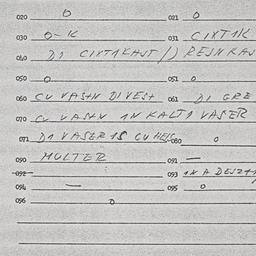 020 0 021 0
030 0-1C 031 CIXT1K
040 D1 CIXT1KAST / ) RESNKAS
050 0 051 0
060 CU VAS+N DIVES+ 061 DI GRE
070 CU VAS+V IN KALT1 VASER
071 D1 VASER IS CU HEIS 080 0
090 MULTER 091 —
092 093 IN A DESZT
094 — 095 0
096 0